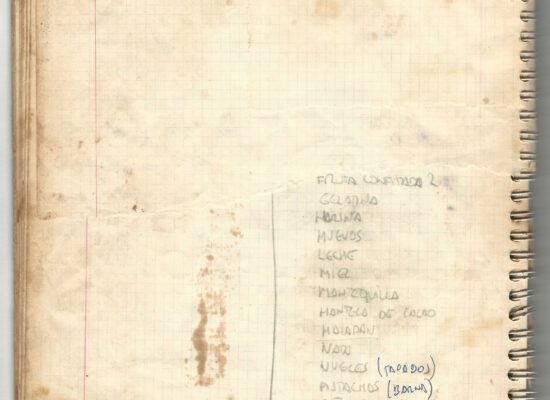 FRUTA CONFITADA 2
GELATINA
HARINA
HUEVOS
LECHE
MIEL
MANTEQUILLA
MANTECA DE CACAO
NATA
NUECES (TAPADOS)
PISTACHOS (BARNA)